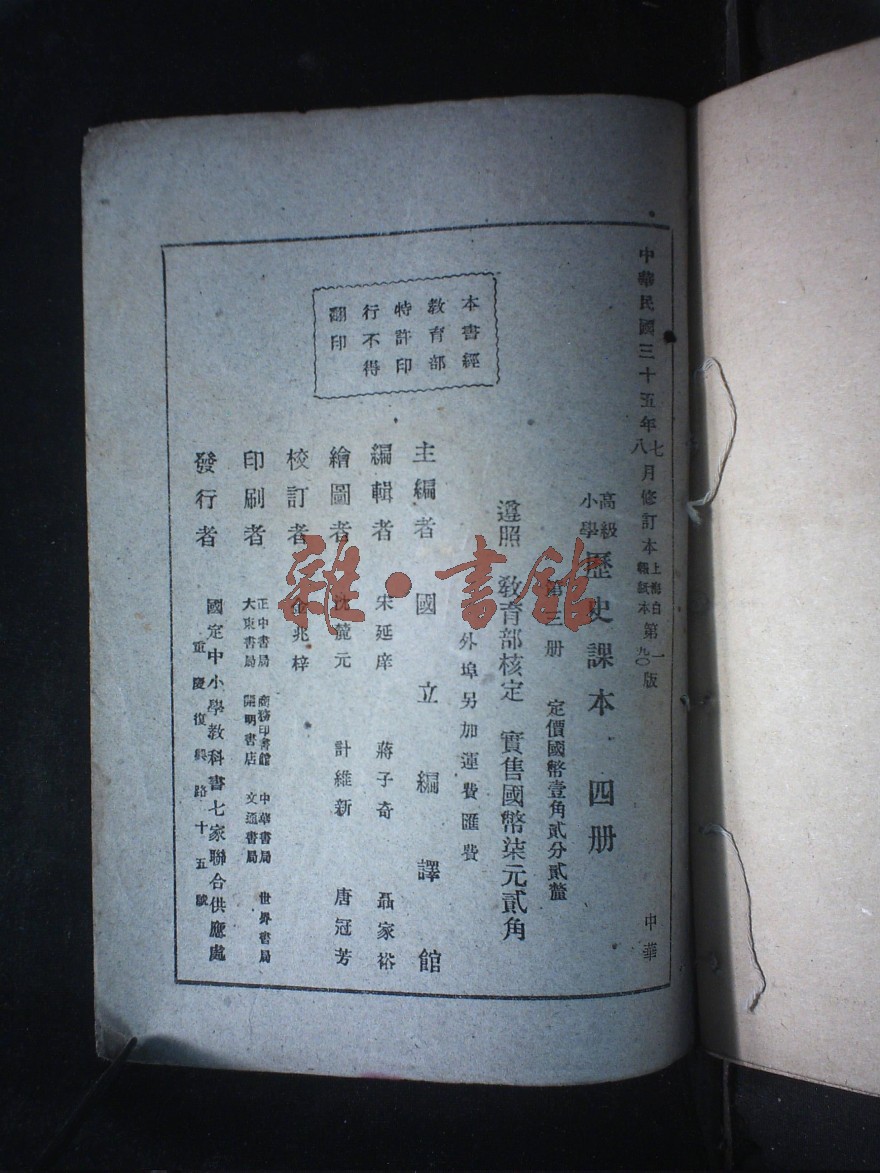 中華民國三十五年七八月修訂本上海白報紙本第一版
九〇
中華
高級小學歷史課本 四册
第三册 定價國幣壹角貳分貳釐
遵照 教育部核定 實售國幣柒元貳角
外埠另加運費匯費
本書經
教育部
特許印
行不得
翻印
主編者 國立編譯館
編輯者 宋延庠 蔣子奇 聶家裕
繪圖者 沈麓元 計維新 唐冠芳
校訂者 金兆梓
印刷者 正中書局 商務印書館 中華書局 世界書局
大東書局 開明書店 文通書局
發行者 國定中小學教科書七家聯合供應處
重慶復興路十五號
雜·書館